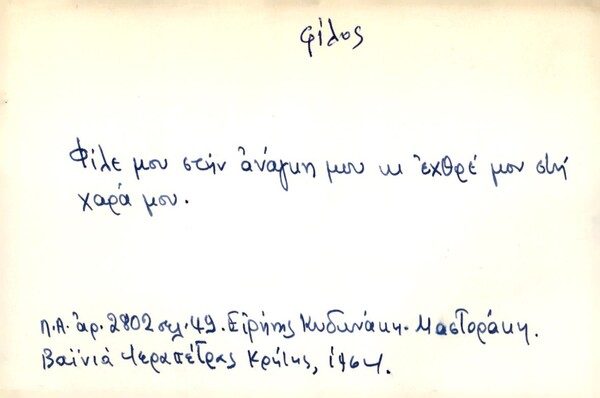 φίλος
Φίλε μου στήν ἀνάγκη μου κι ἐχθρέ μου στή
χαρά μου.
Λ.Α. ἀρ. 2802 σελ. 49. Εἰρήνης Κυδωνάκη-Μαστοράκη.
Βαϊνιά Ἱεραπέτρας Κρήτης, 1964.